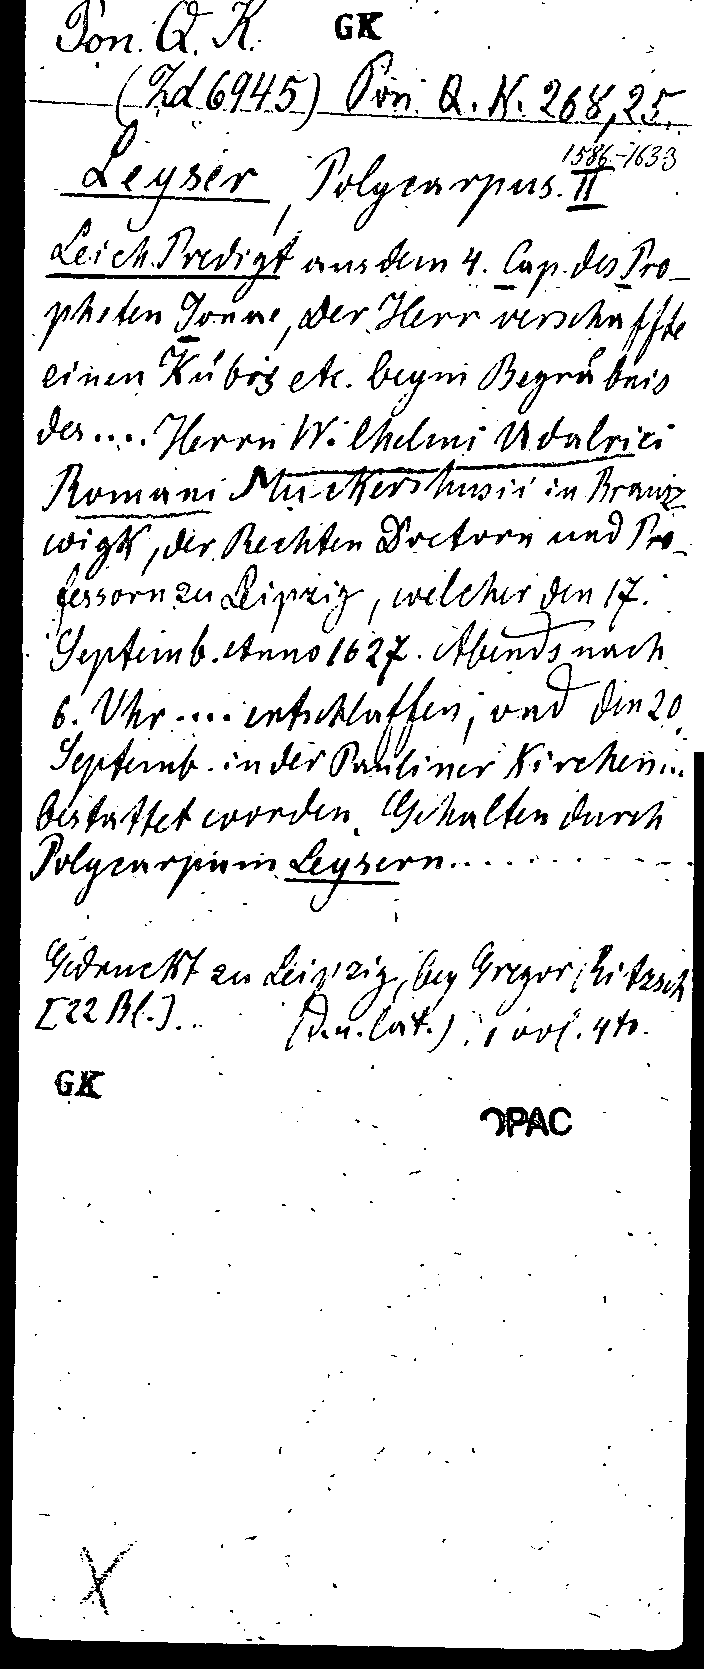 Pon. Q. K. GK
(Zd 6945) Pon. Q. K. 268,25.
1586-1633
Leyser, Polycarpus. II
Leich Predigt aus dem 4. Cap. des Pro-
pheten Jonae, Der Herr verschaffte
einen Kürbis etc. beym Begräbnis
des .... Herrn Wilhelmi Udalrici
Romani Muckershusii in Braunz
wigk, der Rechten Doctorn und Pro-
fessorn zu Leipzig, welcher den 17.
Septemb. Anno 1627. Abends nach
6. Uhr .... entschlaffen, vnd den 20.
Septemb. in der Pauliner Kirchen ...
bestattet worden. Gehalten durch
Polycarpum Leysern........
Gedruckt zu Leipzig, bey Gregor Ritzsch
[22 Bl.]. (D. u. lat.). 1 vol. 4to.
GK
OPAC
X